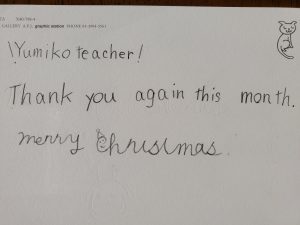 GALLERY A.P.J. graphic station
\Yumiko teacher!
Thank you again this month.
merry Christmas.